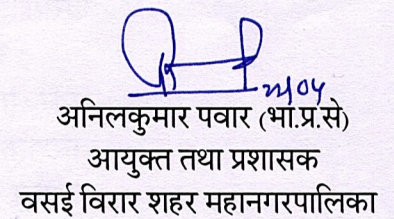 अनिलकुमार पवार (भा.प्र.से)
आयुक्त तथा प्रशासक
वसई विरार शहर महानगरपालिका